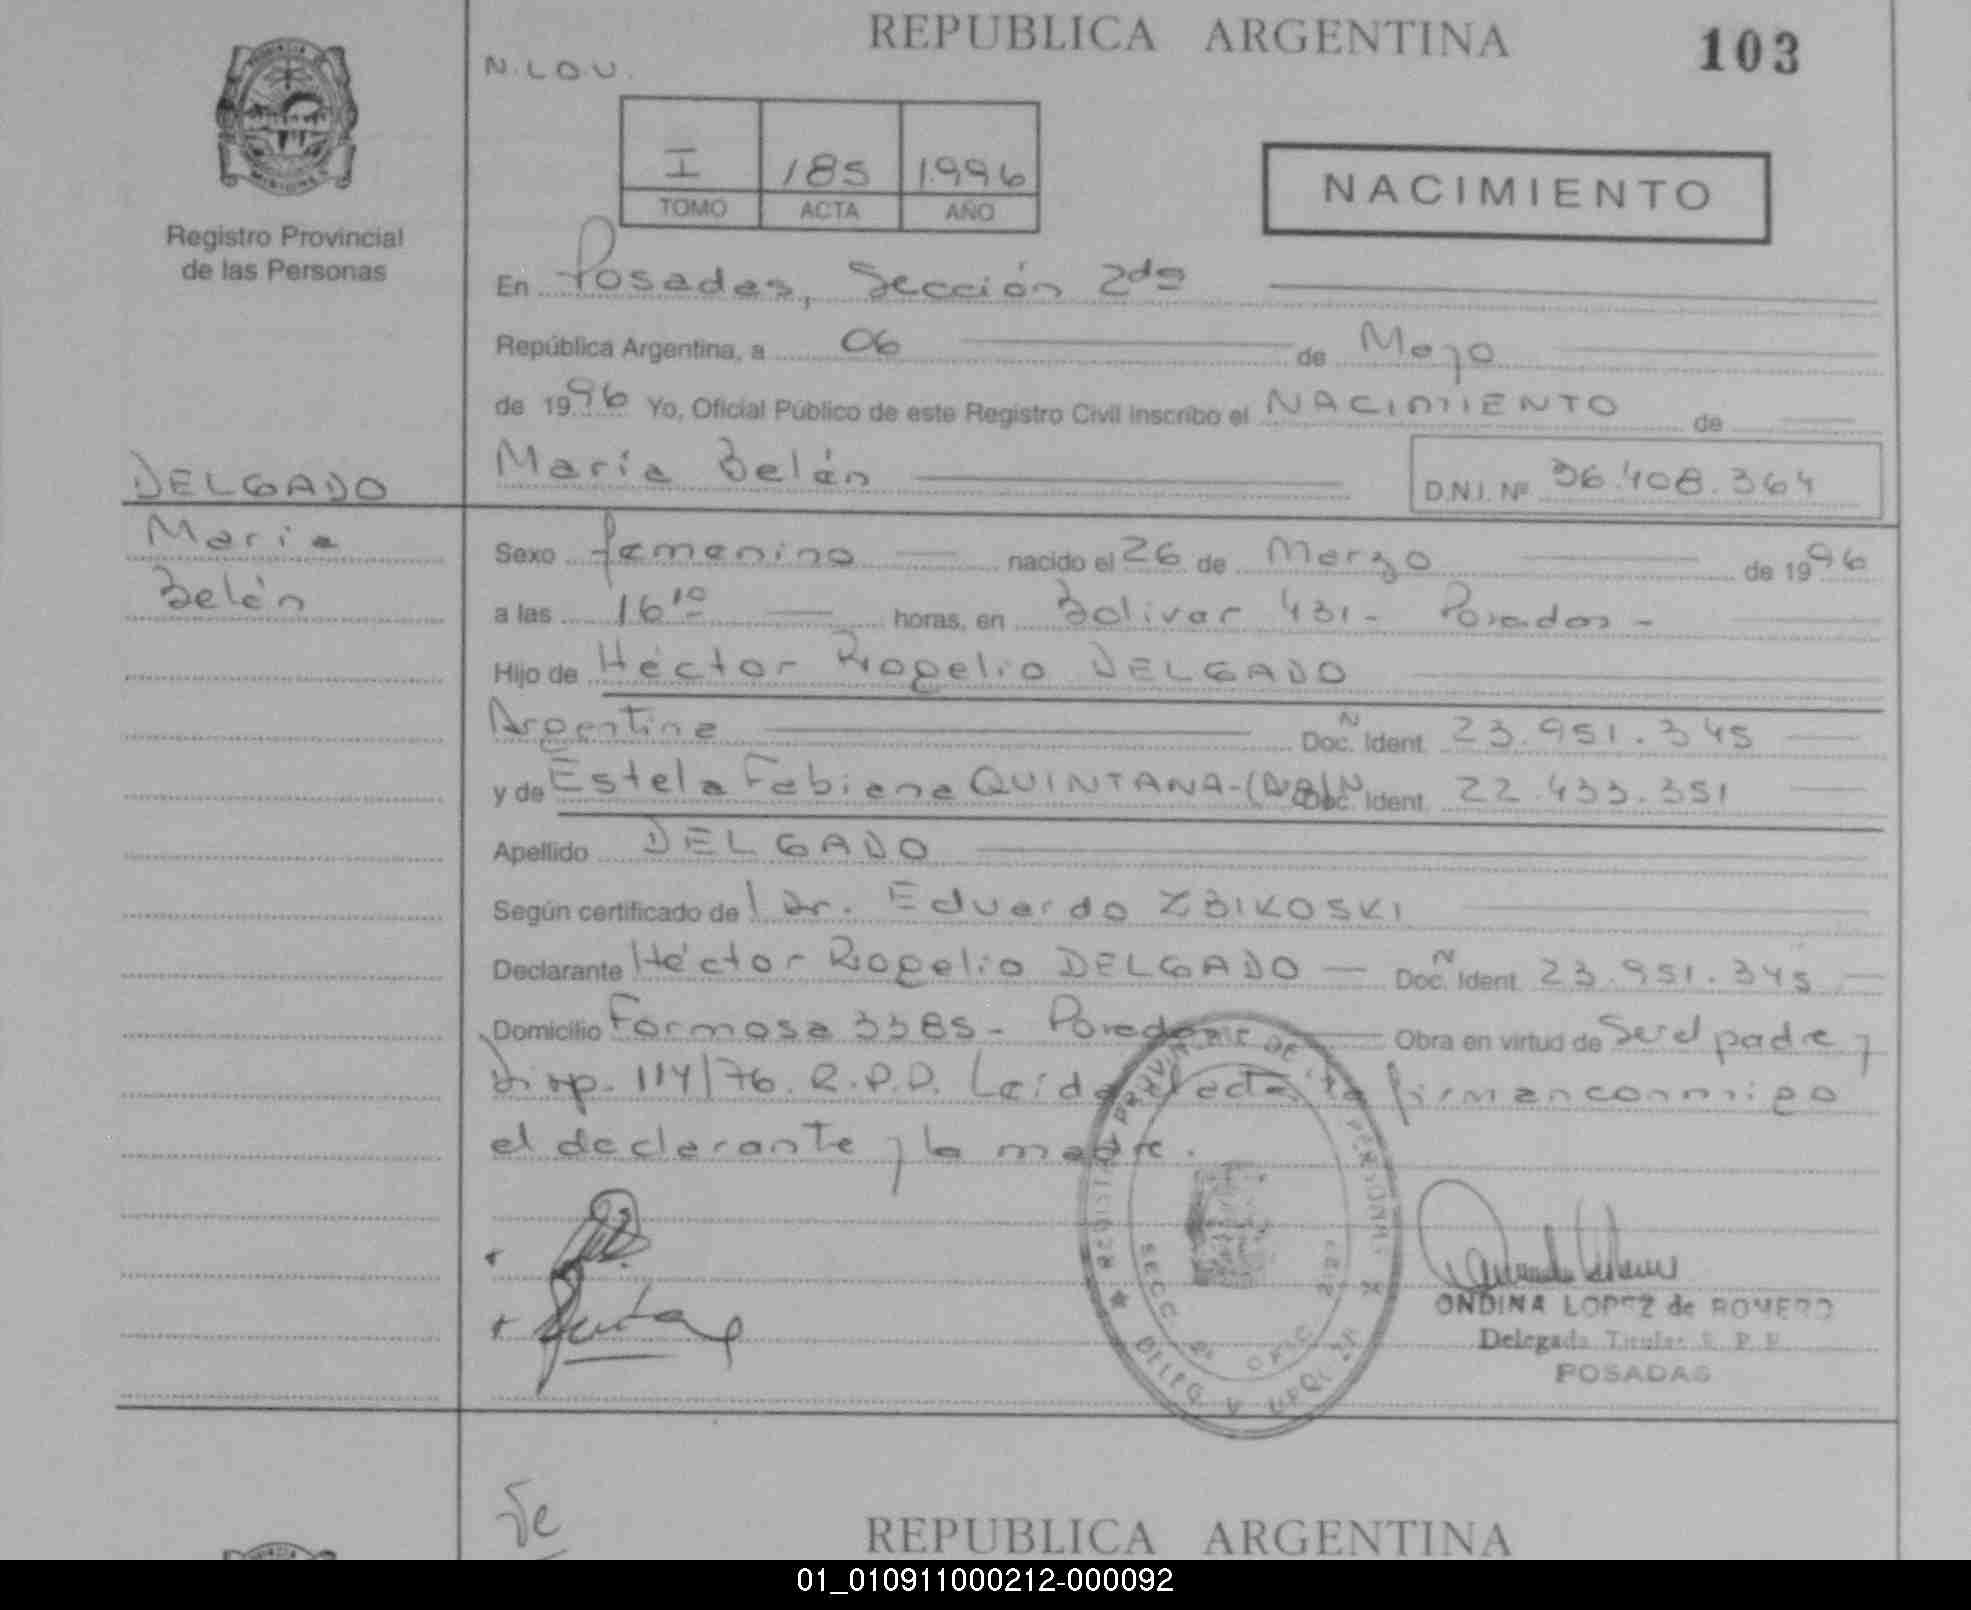 REPUBLICA ARGENTINA
103
N.L.O.U.
I 185 1996
TOMO ACTA AÑO
NACIMIENTO
MISIONES
Registro Provincial
de las Personas
En Posadas, Sección 2da
República Argentina, a 06 de Mayo
de 1996 Yo, Oficial Público de este Registro Civil inscribo el NACIMIENTO de
María Belén D.N.I. Nº 36.408.364
DELGADO
María
Belén
Sexo femenino nacido el 26 de Marzo de 1996
a las 16 10 horas, en Bolivar 431 - Posadas -
Hijo de Héctor Rogelio DELGADO
Argentina Doc. Ident. N 23.951.345
y de Estela Fabiana QUINTANA - Doc. Ident. N 22.433.351
Apellido DELGADO
Según certificado del Dr. Eduardo ZBIKOSKI
Declarante Héctor Rogelio DELGADO — Doc. Ident. N 23.951.345 —
Domicilio Formosa 3385 - Posadas Obra en virtud de Ser el padre y
Disp. 114/76. R.P.P. Leída el acta, la firman conmigo
el declarante y la madre.
REGISTRO PROVINCIAL DE LAS PERSONAS
ONDINA LOPEZ de ROMERO
Delegada Titular R. P. P.
POSADAS
REPUBLICA ARGENTINA
01_010911000212-000092